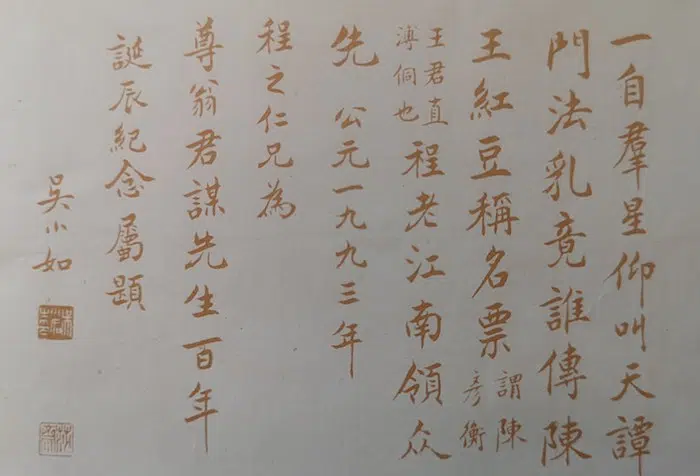 一自羣星仰叫天譚
門法乳竟誰傳陳
王紅豆稱名票謂陳彥衡
王君直溥侗也程老江南領众
先 公元一九九三年
程之仁兄為
尊翁君謀先生百年
誕辰紀念屬題
吳小如